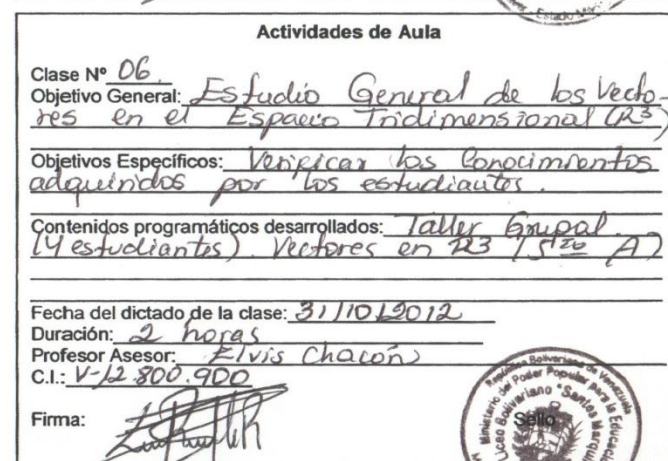 Estado Mér
Actividades de Aula
Clase Nº 06.
Objetivo General: Estudio General de los Vecto-
res en el Espacio Tridimensional (R3)
Objetivos Específicos: Verificar los Conocimientos
adquiridos por los estudiantes.
Contenidos programáticos desarrollados: Taller Grupal
(4 estudiantes). Vectores en R3 (5to A)
Fecha del dictado de la clase: 31/10/2012
Duración: 2 horas
Profesor Asesor: Elvis Chacón
C.I.: V-12.800.900
Firma:
Sello
República Bolivariana de Venezuela
Ministerio del Poder Popular para la Educación
Liceo Bolivariano "Santos Marqu